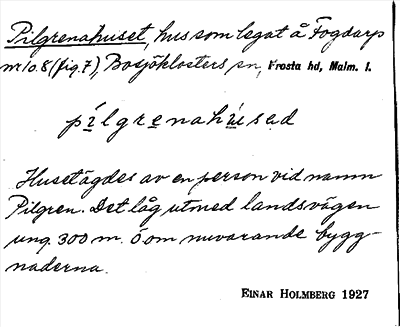 Pilgrenahuset, hus som legat å Fogdarp
nr 10. 8 (fig. 7), Bosjöklosters sn, Frosta hd, Malm. l.
pilgrenahúsəd
Huset ägdes av en person vid namn
Pilgren. Det låg utmed landsvägen
ung. 300 m. ö om nuvarande bygg-
naderna.
EINAR HOLMBERG 1927